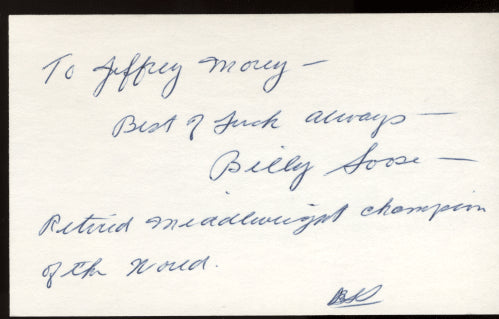 To Jeffrey Morey —
Best of Luck always —
Billy Soose —
Retired middleweight champion
of the World.